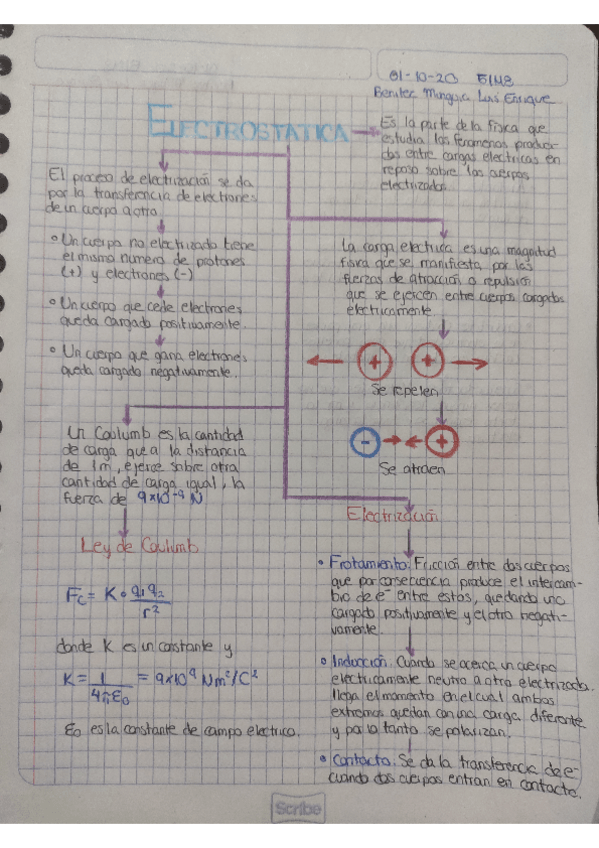 01-10-20 51M8
Benitez Munguia Luis Enrique
ELECTROSTATICA
Es la parte de la fisica que
estudia los fenomenos produci-
dos entre cargas electricas en
reposo sobre los cuerpos
electrizados
El proceso de electrización se da
por la transferencia de electrones
de un cuerpo a otro.
Un cuerpo no electrizado tiene
el mismo numero de protones
(+) y electrones (-)
Un cuerpo que cede electrones
queda cargado positivamente.
Un cuerpo que gana electrones
queda cargado negativamente.
La carga electrica es una magnitud
fisica que se manifiesta por las
fuerzas de atracción o repulsión
que se ejercen entre cuerpos cargados
electricamente
+ +
Se repelen
- +
Se atraen
Un Coulumb es la cantidad
de carga que a la distancia
de 1m, ejerce sobre otra
cantidad de carga igual, la
fuerza de 9x10⁻⁹ N
Ley de Coulumb
Fc = K • q₁q₂
r²
donde K es un constante y
K = 1 = 9x10⁹ Nm²/C²
4πε₀
ε₀ es la constante de campo electrico.
Electrización
Frotamiento: Fricción entre dos cuerpos
que por consecuencia produce el intercam-
bio de e⁻ entre estos, quedando uno
cargado positivamente y el otro negati-
vamente.
Inducción. Cuando se acerca un cuerpo
electricamente neutro a otro electrizado.
llega el momento en el cual ambos
extremos quedan con una carga diferente
y por lo tanto se polarizan.
Contacto: Se da la transferencia de e⁻
cuando dos cuerpos entran en contacto.
Scribe